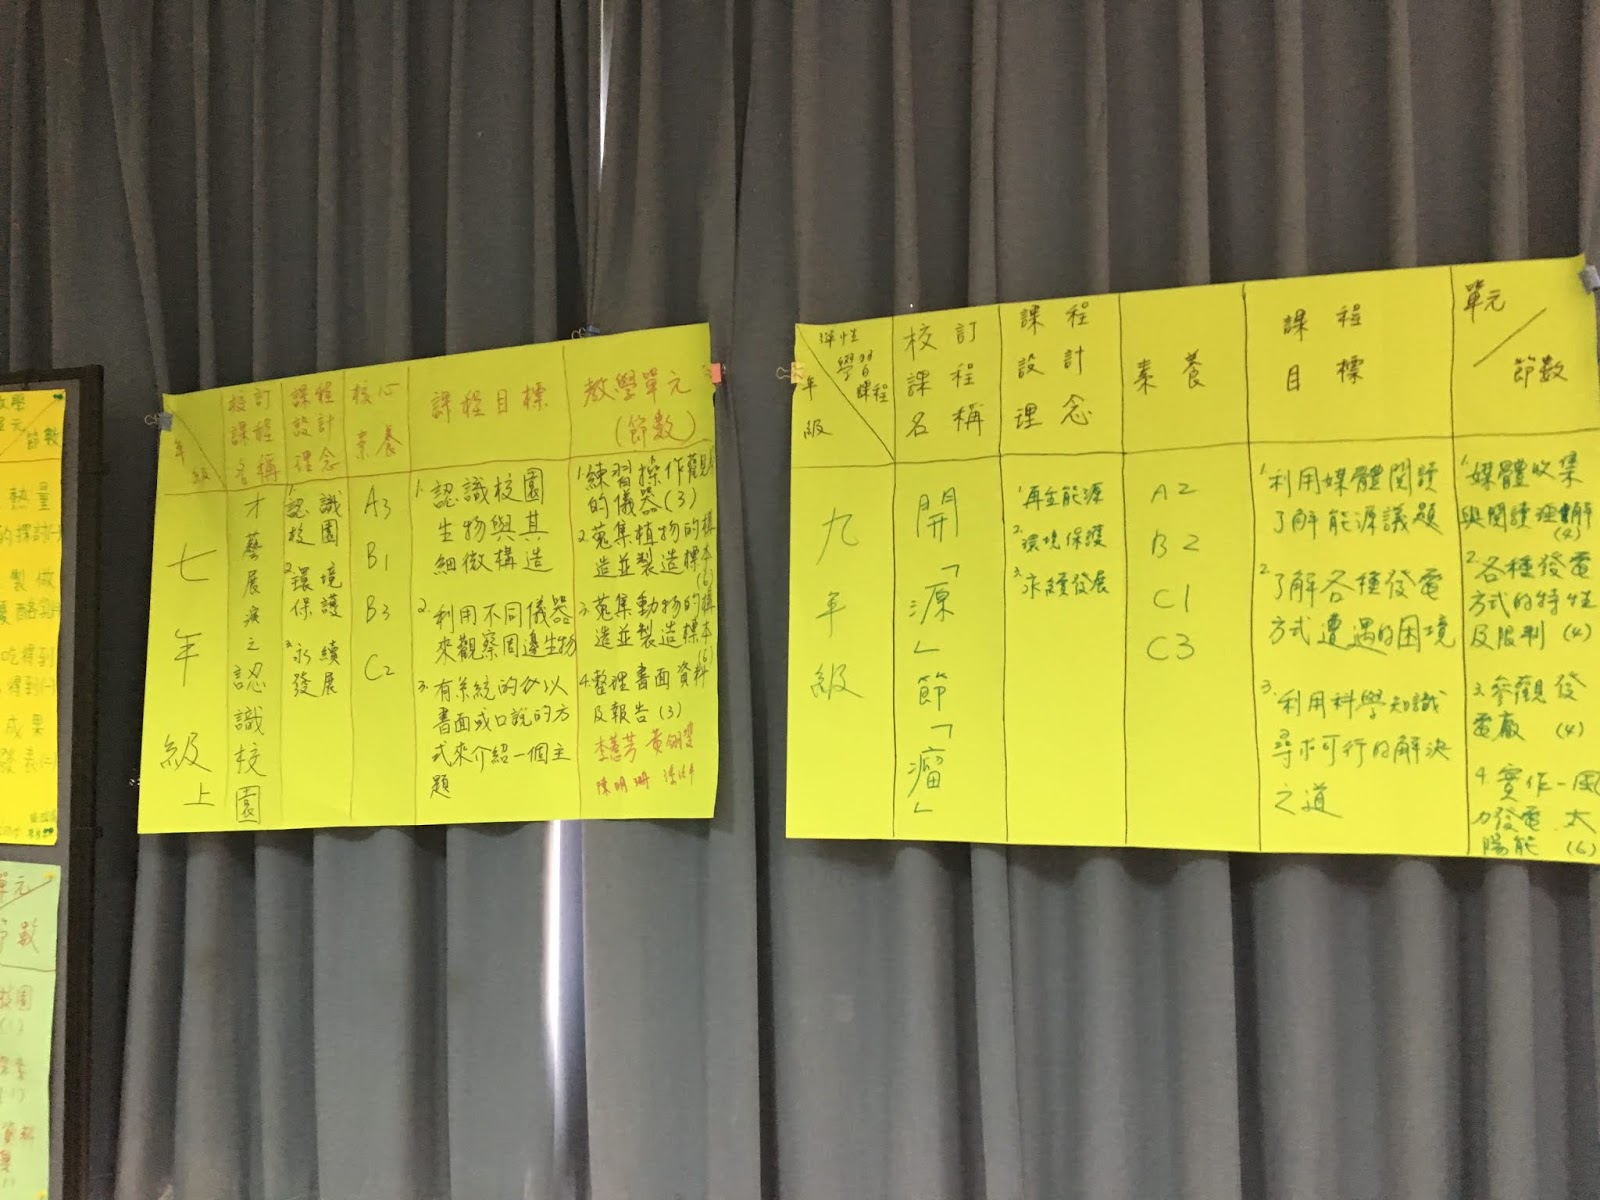 教學
單元
節數
熱量
的探討(一)
製做
吃得到
得到(一)
成果
發表(二)
單元
節數
校園
(1)
探索
年
級
校訂
課程
名稱
課程
設計
理念
核心
素養
課程目標
教學單元
(節數)
七年級上
才藝展演之認識校園
1.認識
校園
2.環境
保護
3.永續
發展
A3
B1
B3
C2
1.認識校園
生物與其
細微構造
2.利用不同儀器
來觀察周邊生物
3.有系統的以
書面或口說的方
式來介紹一個主
題
1.練習操作觀察
的儀器(3)
2.蒐集植物的構
造並製造標本
(6)
3.蒐集動物的構
造並製造標本
(6)
4.整理書面資料
及報告(3)
李蕙芳
陳明珊
彈性
學習
課程
年
級
校訂
課程
名稱
課程
設計
理念
素養
課程
目標
單元
節數
九年級
開「源」節「瘤」
1.再生能源
2.環境保護
3.永續發展
A2
B2
C1
C3
1.利用媒體閱讀
了解能源議題
2.了解各種發電
方式遭遇的困境
3.利用科學知識
尋求可行的解決
之道
1.媒體收集
與閱讀理解
(4)
2.各種發電
方式的特性
及限制(4)
3.參觀發
電廠(4)
4.實作-風
力發電、太
陽能(6)